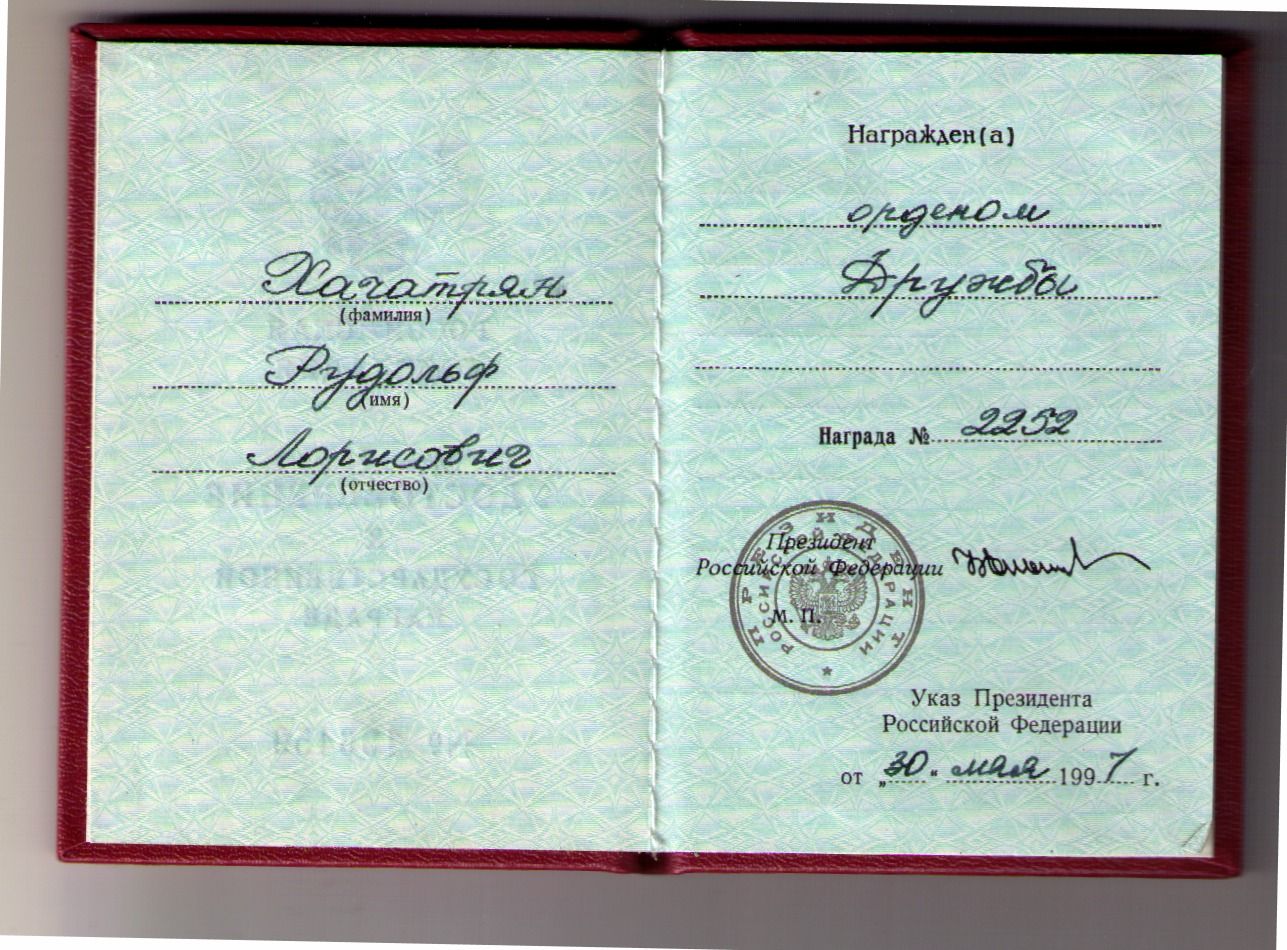 Хачатрян
(фамилия)
Рудольф
(имя)
Лорисович
(отчество)
Награжден(а)
орденом
Дружбы
Награда № 2252
ПРЕЗИДЕНТ
РОССИЙСКОЙ ФЕДЕРАЦИИ
Президент
Российской Федерации
М. П.
Указ Президента
Российской Федерации
от „30" мая 1997 г.